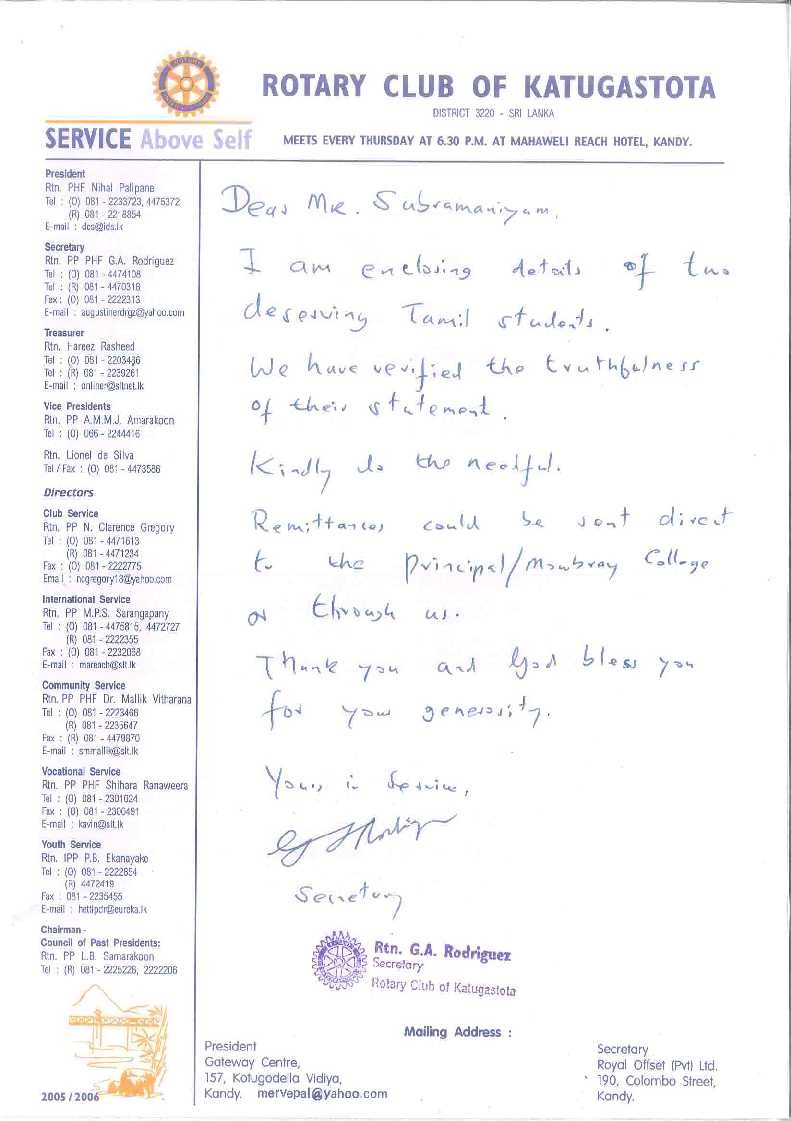 ROTARY CLUB OF KATUGASTOTA
DISTRICT 3220 - SRI LANKA
SERVICE Above Self
MEETS EVERY THURSDAY AT 6.30 P.M. AT MAHAWELI REACH HOTEL, KANDY.
President
Rtn. PHF Nihal Palipane
Tel : (O) 081 - 2233723, 4475372
(R) 081 - 2218854
E-mail : des@ids.lk
Secretary
Rtn. PP PHF G.A. Rodriguez
Tel : (O) 081 - 4474108
Tel : (R) 081 - 4470318
Fax : (O) 081 - 2222313
E-mail : augustinerdrgz@yahoo.com
Treasurer
Rtn. Hareez Rasheed
Tel : (O) 081 - 2203436
Tel : (R) 081 - 2239261
E-mail : onliner@sltnet.lk
Vice Presidents
Rtn. PP A.M.M.J. Amarakoon
Tel : (O) 066 - 2244416
Rtn. Lionel de Silva
Tel / Fax : (O) 081 - 4473586
Directors
Club Service
Rtn. PP N. Clarence Gregory
Tel : (O) 081 - 4471613
(R) 081 - 4471234
Fax : (O) 081 - 2222775
Email : ncgregory13@yahoo.com
International Service
Rtn. PP M.P.S. Sarangapany
Tel : (O) 081 - 4475815, 4472727
(R) 081 - 2222355
Fax : (O) 081 - 2232068
E-mail : mareach@slt.lk
Community Service
Rtn. PP PHF Dr. Mallik Vitharana
Tel : (O) 081 - 2223466
(R) 081 - 2235647
Fax : (R) 081 - 4479870
E-mail : smmallik@slt.lk
Vocational Service
Rtn. PP PHF Shihara Ranaweera
Tel : (O) 081 - 2301024
Fax : (O) 081 - 2300491
E-mail : kavin@slt.lk
Youth Service
Rtn. IPP P.B. Ekanayake
Tel : (O) 081 - 2222654
(R) 4472419
Fax : 081 - 2235455
E-mail : hettipdn@eureka.lk
Chairman -
Council of Past Presidents:
Rtn. PP L.B. Samarakoon
Tel : (R) 081 - 2225226, 2222206
2005 / 2006
Dear Mr. Subramaniyam,
I am enclosing details of two
deserving Tamil students.
We have verified the truthfulness
of their statement.
Kindly do the needful.
Remittances could be sent direct
to the Principal/Mowbray College
or through us.
Thank you and God bless you
for your generosity.
Yours in Service,
Secretary
Rtn. G.A. Rodriguez
Secretary
Rotary Club of Katugastota
Mailing Address :
President
Gateway Centre,
157, Kotugodella Vidiya,
Kandy. mervepal@yahoo.com
Secretary
Royal Offset (Pvt) Ltd.
190, Colombo Street,
Kandy.